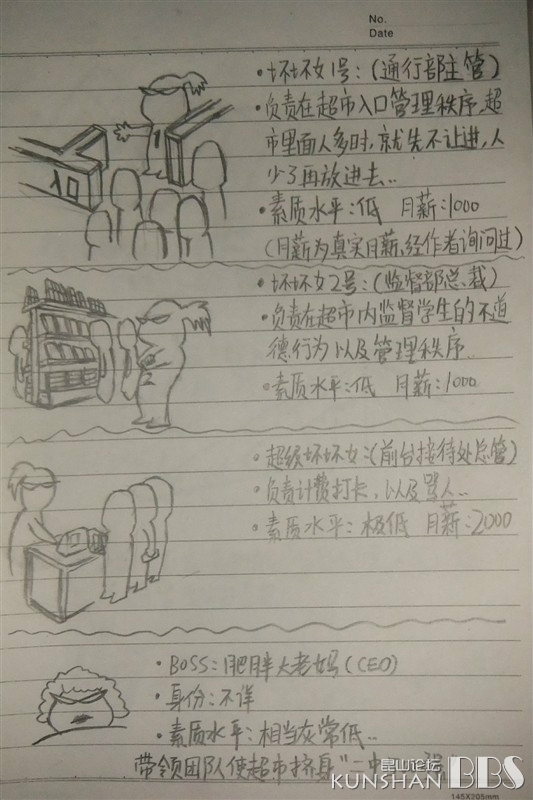 No.
Date
·坏坏女1号:(通行部主管)
·负责在超市入口管理秩序,超
市里面人多时,就先不让进,人
少了再放进去..
·素质水平:低 月薪:1000
(月薪为真实月薪,经作者询问过)
·坏坏女2号:(监督部总裁)
·负责在超市内监督学生的不道
德行为以及管理秩序..
·素质水平:低 月薪:1000
·超级坏坏女:(前台接待处总管)
·负责计费打卡,以及骂人...
·素质水平:极低 月薪:2000
·BOSS:肥胖大老妈(CEO)
·身份:不详
·素质水平:相当灰常低..
带领团队使超市挤身"一中
昆山论坛
KUNSHAN BBS
145X205mm